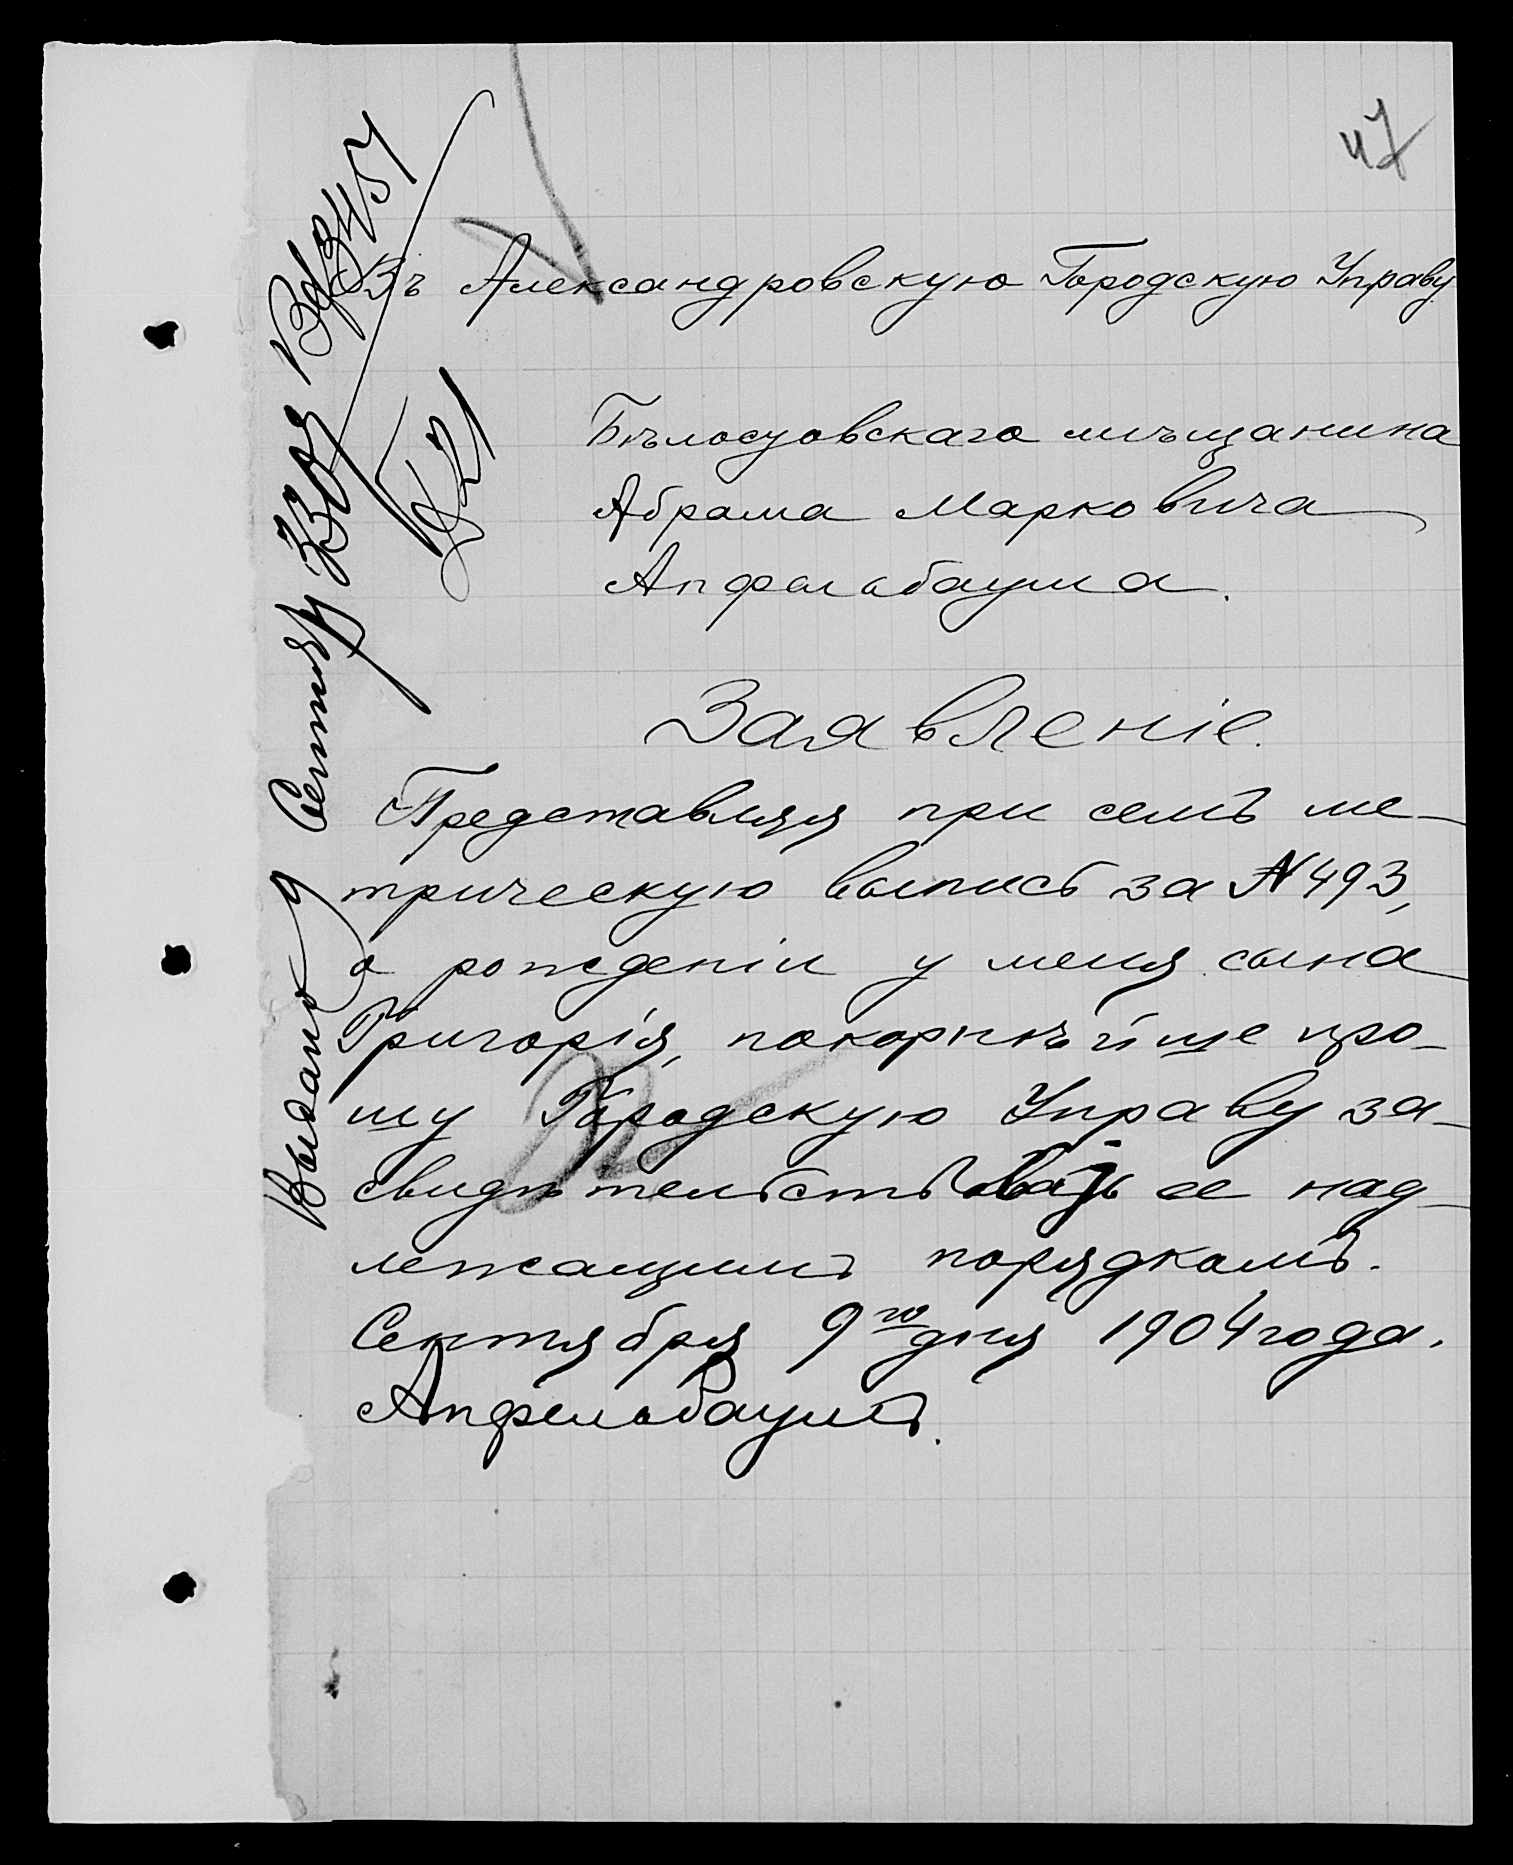 47
Въ Александровскую Городскую Управу
Бѣлоцуовскаго мѣщанина
Абрама Марковича
Апфельбаума.
Заявленіе.
Представляя при семъ ме-
трическую выпись за № 493,
о рожденіи у меня сына
Григорія, покорнѣйше про-
шу Городскую Управу за-
свидѣтельствовать ее над-
лежащимъ порядкомъ.
Сентября 9го дня 1904 года.
Апфельбаумъ.
Выдано 9 Сентяб
Вх 3451